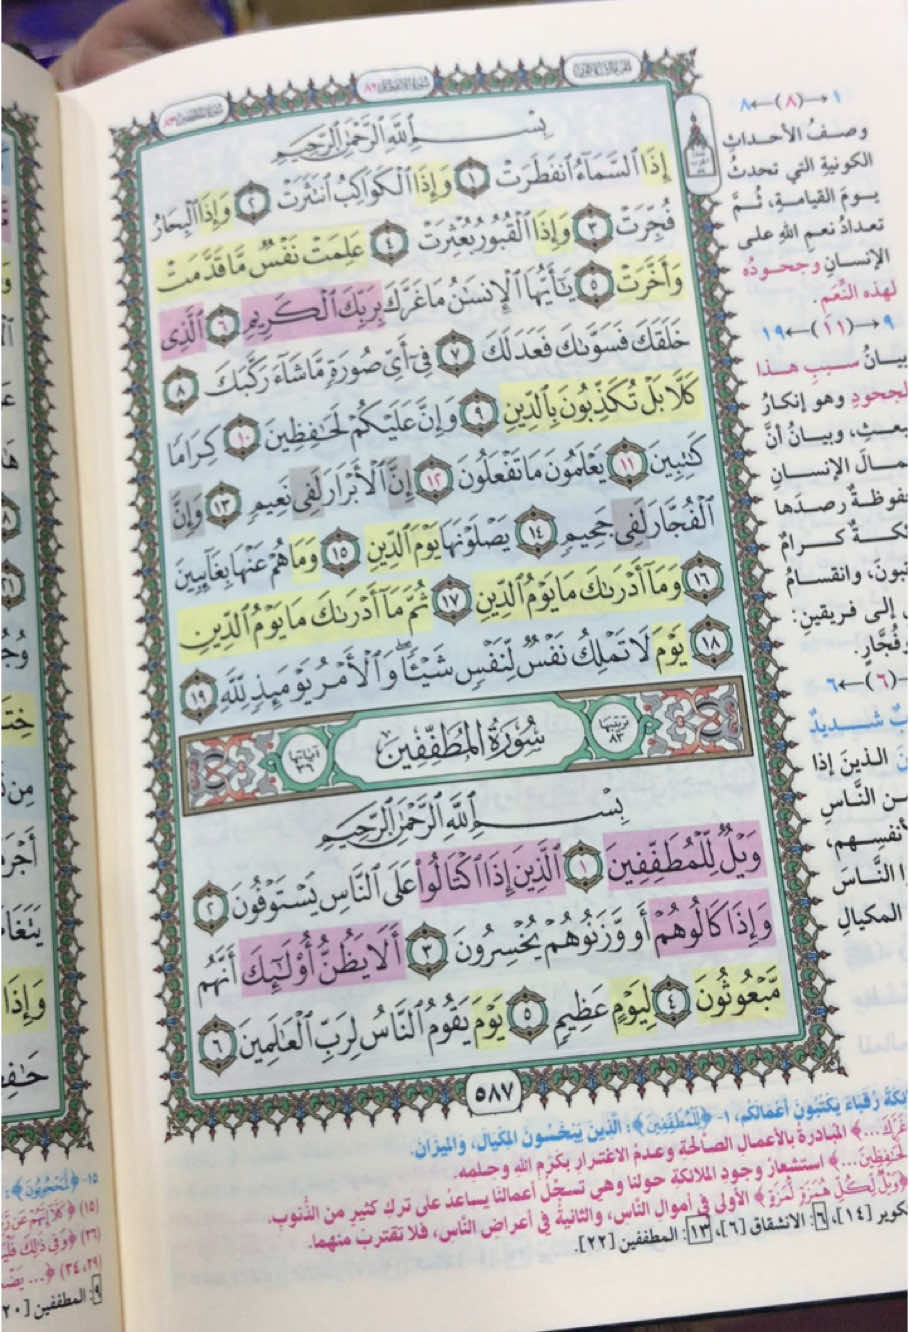 سورة المطففين ٨٣
سورة الانفطار ٨٢
بِسْمِ ٱللَّهِ ٱلرَّحْمَٰنِ ٱلرَّحِيمِ
إِذَا ٱلسَّمَآءُ ٱنفَطَرَتْ ١ وَإِذَا ٱلْكَوَاكِبُ ٱنتَثَرَتْ ٢ وَإِذَا ٱلْبِحَارُ
فُجِّرَتْ ٣ وَإِذَا ٱلْقُبُورُ بُعْثِرَتْ ٤ عَلِمَتْ نَفْسٌ مَّا قَدَّمَتْ
وَأَخَّرَتْ ٥ يَٰٓأَيُّهَا ٱلْإِنسَٰنُ مَا غَرَّكَ بِرَبِّكَ ٱلْكَرِيمِ ٦ ٱلَّذِى
خَلَقَكَ فَسَوَّىٰكَ فَعَدَلَكَ ٧ فِىٓ أَىِّ صُورَةٍ مَّا شَآءَ رَكَّبَكَ ٨
كَلَّا بَلْ تُكَذِّبُونَ بِٱلدِّينِ ٩ وَإِنَّ عَلَيْكُمْ لَحَٰفِظِينَ ١٠ كِرَامًا
كَٰتِبِينَ ١١ يَعْلَمُونَ مَا تَفْعَلُونَ ١٢ إِنَّ ٱلْأَبْرَارَ لَفِى نَعِيمٍ ١٣ وَإِنَّ
ٱلْفُجَّارَ لَفِى جَحِيمٍ ١٤ يَصْلَوْنَهَا يَوْمَ ٱلدِّينِ ١٥ وَمَا هُمْ عَنْهَا بِغَآئِبِينَ
١٦ وَمَآ أَدْرَىٰكَ مَا يَوْمُ ٱلدِّينِ ١٧ ثُمَّ مَآ أَدْرَىٰكَ مَا يَوْمُ ٱلدِّينِ
١٨ يَوْمَ لَا تَمْلِكُ نَفْسٌ لِّنَفْسٍ شَيْـًٔا ۖ وَٱلْأَمْرُ يَوْمَئِذٍ لِّلَّهِ ١٩
ترتيبها ٨٣ سُورَةُ المُطَفِّفِينَ آياتها ٣٦
بِسْمِ ٱللَّهِ ٱلرَّحْمَٰنِ ٱلرَّحِيمِ
وَيْلٌ لِّلْمُطَفِّفِينَ ١ ٱلَّذِينَ إِذَا ٱكْتَالُوا۟ عَلَى ٱلنَّاسِ يَسْتَوْفُونَ ٢
وَإِذَا كَالُوهُمْ أَو وَّزَنُوهُمْ يُخْسِرُونَ ٣ أَلَا يَظُنُّ أُو۟لَٰٓئِكَ أَنَّهُم
مَّبْعُوثُونَ ٤ لِيَوْمٍ عَظِيمٍ ٥ يَوْمَ يَقُومُ ٱلنَّاسُ لِرَبِّ ٱلْعَٰلَمِينَ ٦
٥٨٧
١←(٨)←٨
وصفُ الأحداثِ
الكونيةِ التي تحدثُ
يومَ القيامةِ، ثُمَّ
تعدادُ نعمِ اللهِ على
الإنسانِ وجحودُه
لهذه النِّعَمِ.
٩←(١١)←١٩
بيانُ سببِ هذا
الجحودِ وهو إنكارُ
البعثِ، وبيانُ أنَّ
الإنسانِ
رصدَها
كرامٌ
وانقسامُ
إلى فريقينِ:
وفُجَّارٍ.
(٦)←٦
شديدٌ
الذينَ إذا
النَّاسِ
النَّاسَ
المكيالِ
رُقَبَاءَ يَكتُبُونَ أعْمَالَكُم، ١- ﴿لِلْمُطَفِّفِينَ﴾: الَّذِينَ يَبْخَسُونَ المِكْيَالَ، وَالمِيزَانَ.
غَرَّكَ...﴾ المبادرةُ بالأعمالِ الصَّالحةِ وعدمُ الاغترارِ بكرَمِ اللهِ وحلمِه.
لَحَافِظِينَ...﴾ استشعارُ وجودِ الملائكةِ حولنا وهي تسجِّلُ أعمالنا يساعدُ على تركِ كثيرٍ من الذُّنوبِ.
﴿وَيْلٌ لِّكُلِّ هُمَزَةٍ لُّمَزَةٍ﴾ الأولى في أموالِ النَّاسِ، والثانيةُ في أعراضِ النَّاسِ، فلا تقتربْ منهما.
[١٤]، ٦: الانشقاق [٦]، ١٣: المطففين [٢٢].
٩: المطففين [٢٠